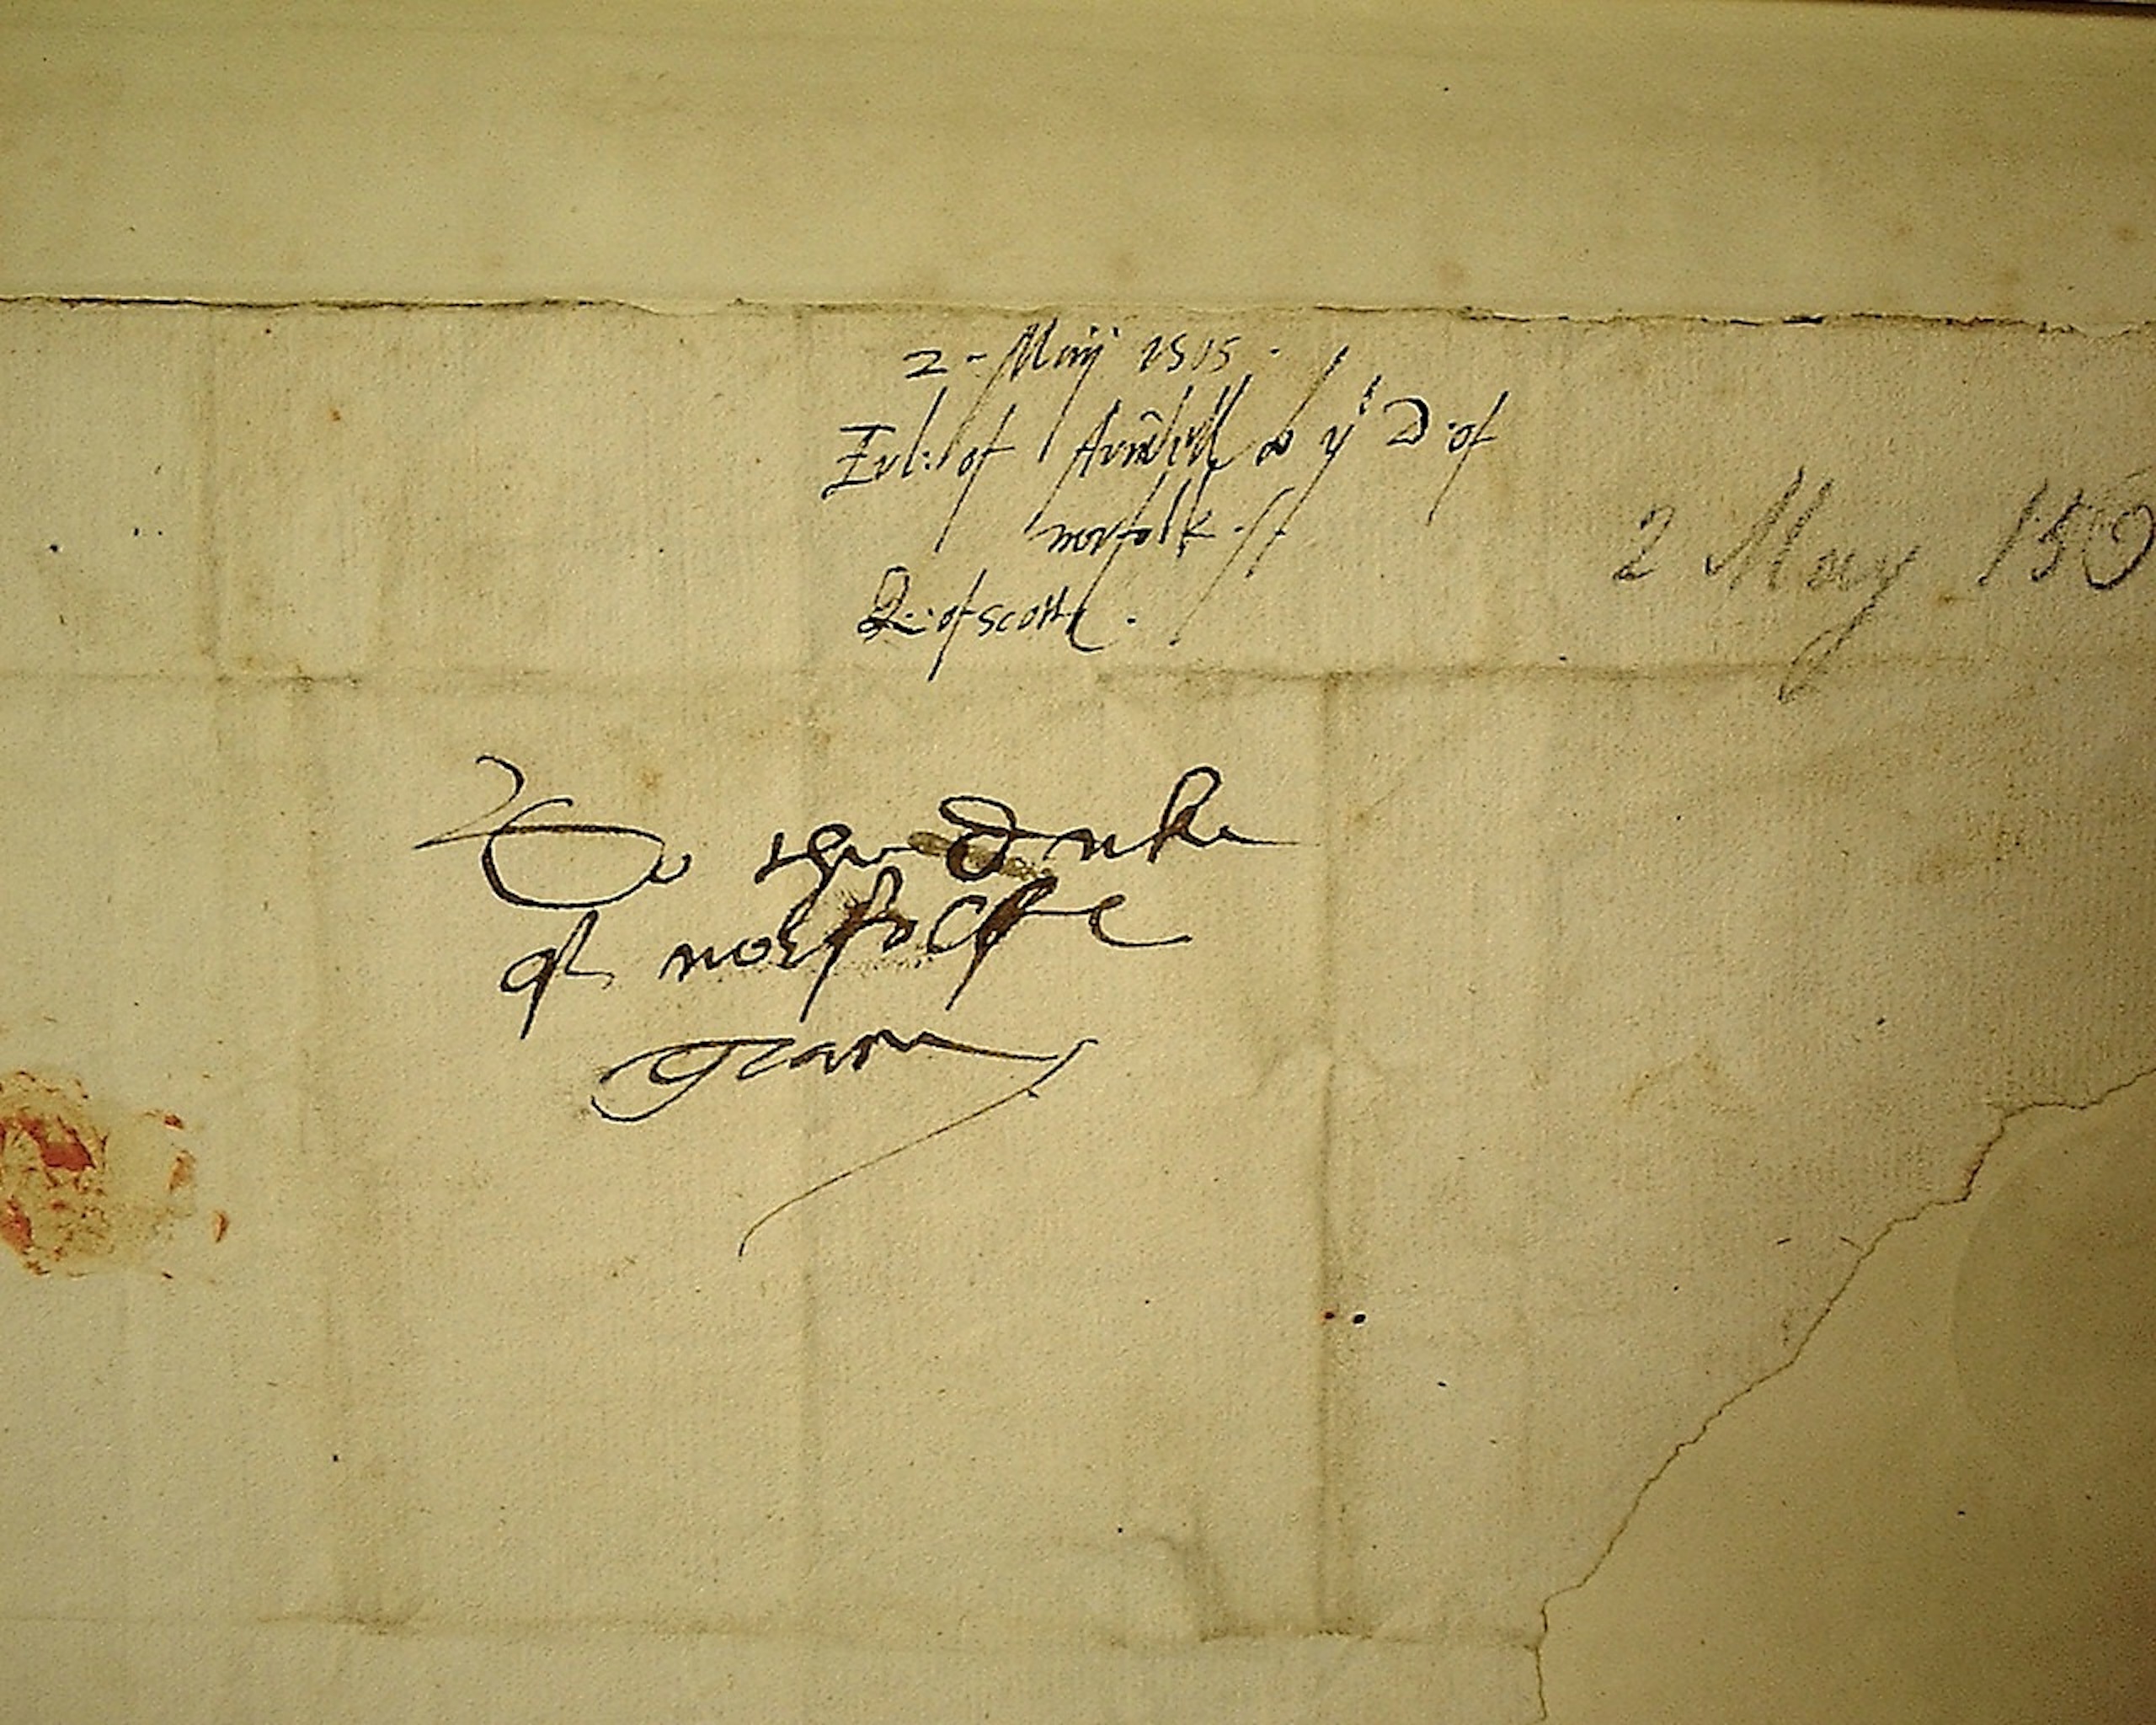 2 - Maij 1565 .
Erl: of Arūdell & yͤ D: of
norfolk . //
Q: of scotts .
2 May 156
To the duke
of norfolke